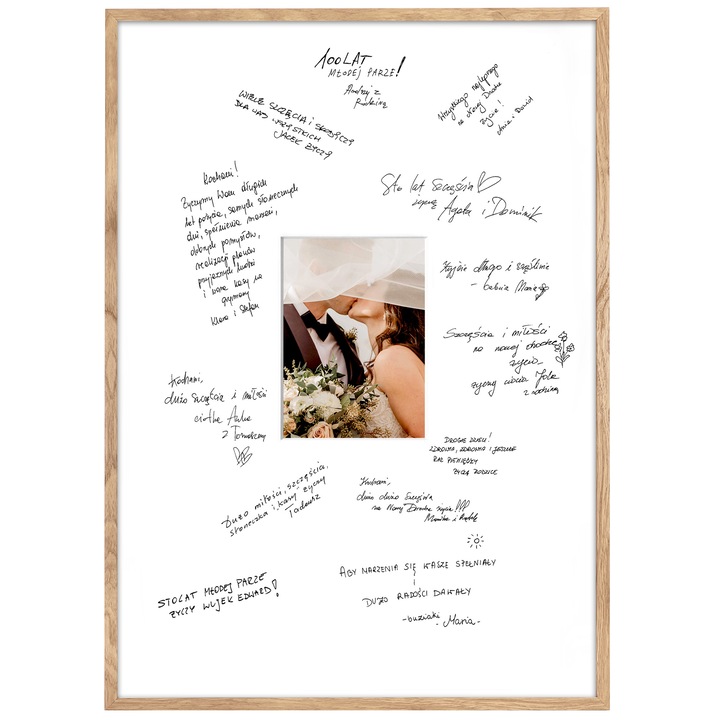 100 LAT
MŁODEJ PARZE!
Andrzej z
Rodziną
WIELE SZCZĘŚCIA I SŁODYCZY
DLA WAS WSZYSTKICH
JACEK ŻYCZY
Wszystkiego najlepszego
na Nowej Drodze
życia!
Ania i Dawid
Kochani!
Życzymy Wam długich
lat pożycia, samych słonecznych
dni, spełnienia marzeń,
dobrych pomysłów,
realizacji planów
przyjaznych ludzi
i
Klara i Stefan
Sto lat Szczęścia
życzą Agata i Dominik
Żyjcie długo i szczęśliwie
- babcia Maria
Szczęścia i miłości
na nowej drodze
życia...
życzy ciocia Jola
z rodziną
Kochani,
dużo szczęścia i miłości
ciotka Anka
z Tomaszem
DROGIE DZIECI!
ZDROWIA, ZDROWIA I JESZCZE
RAZ PIENIĘDZY
ŻYCZĄ RODZICE
Kochani,
dużo dużo Szczęścia
na Nowej Drodze życia!!!
Monika i
Dużo miłości, szczęścia,
słoneczka i kasy życzy
Tadeusz
ABY MARZENIA SIĘ WASZE SPEŁNIAŁY
i
DUŻO RADOŚCI DAWAŁY
- buziaki
Maria -
STO LAT MŁODEJ PARZE
ŻYCZY WUJEK EDWARD!